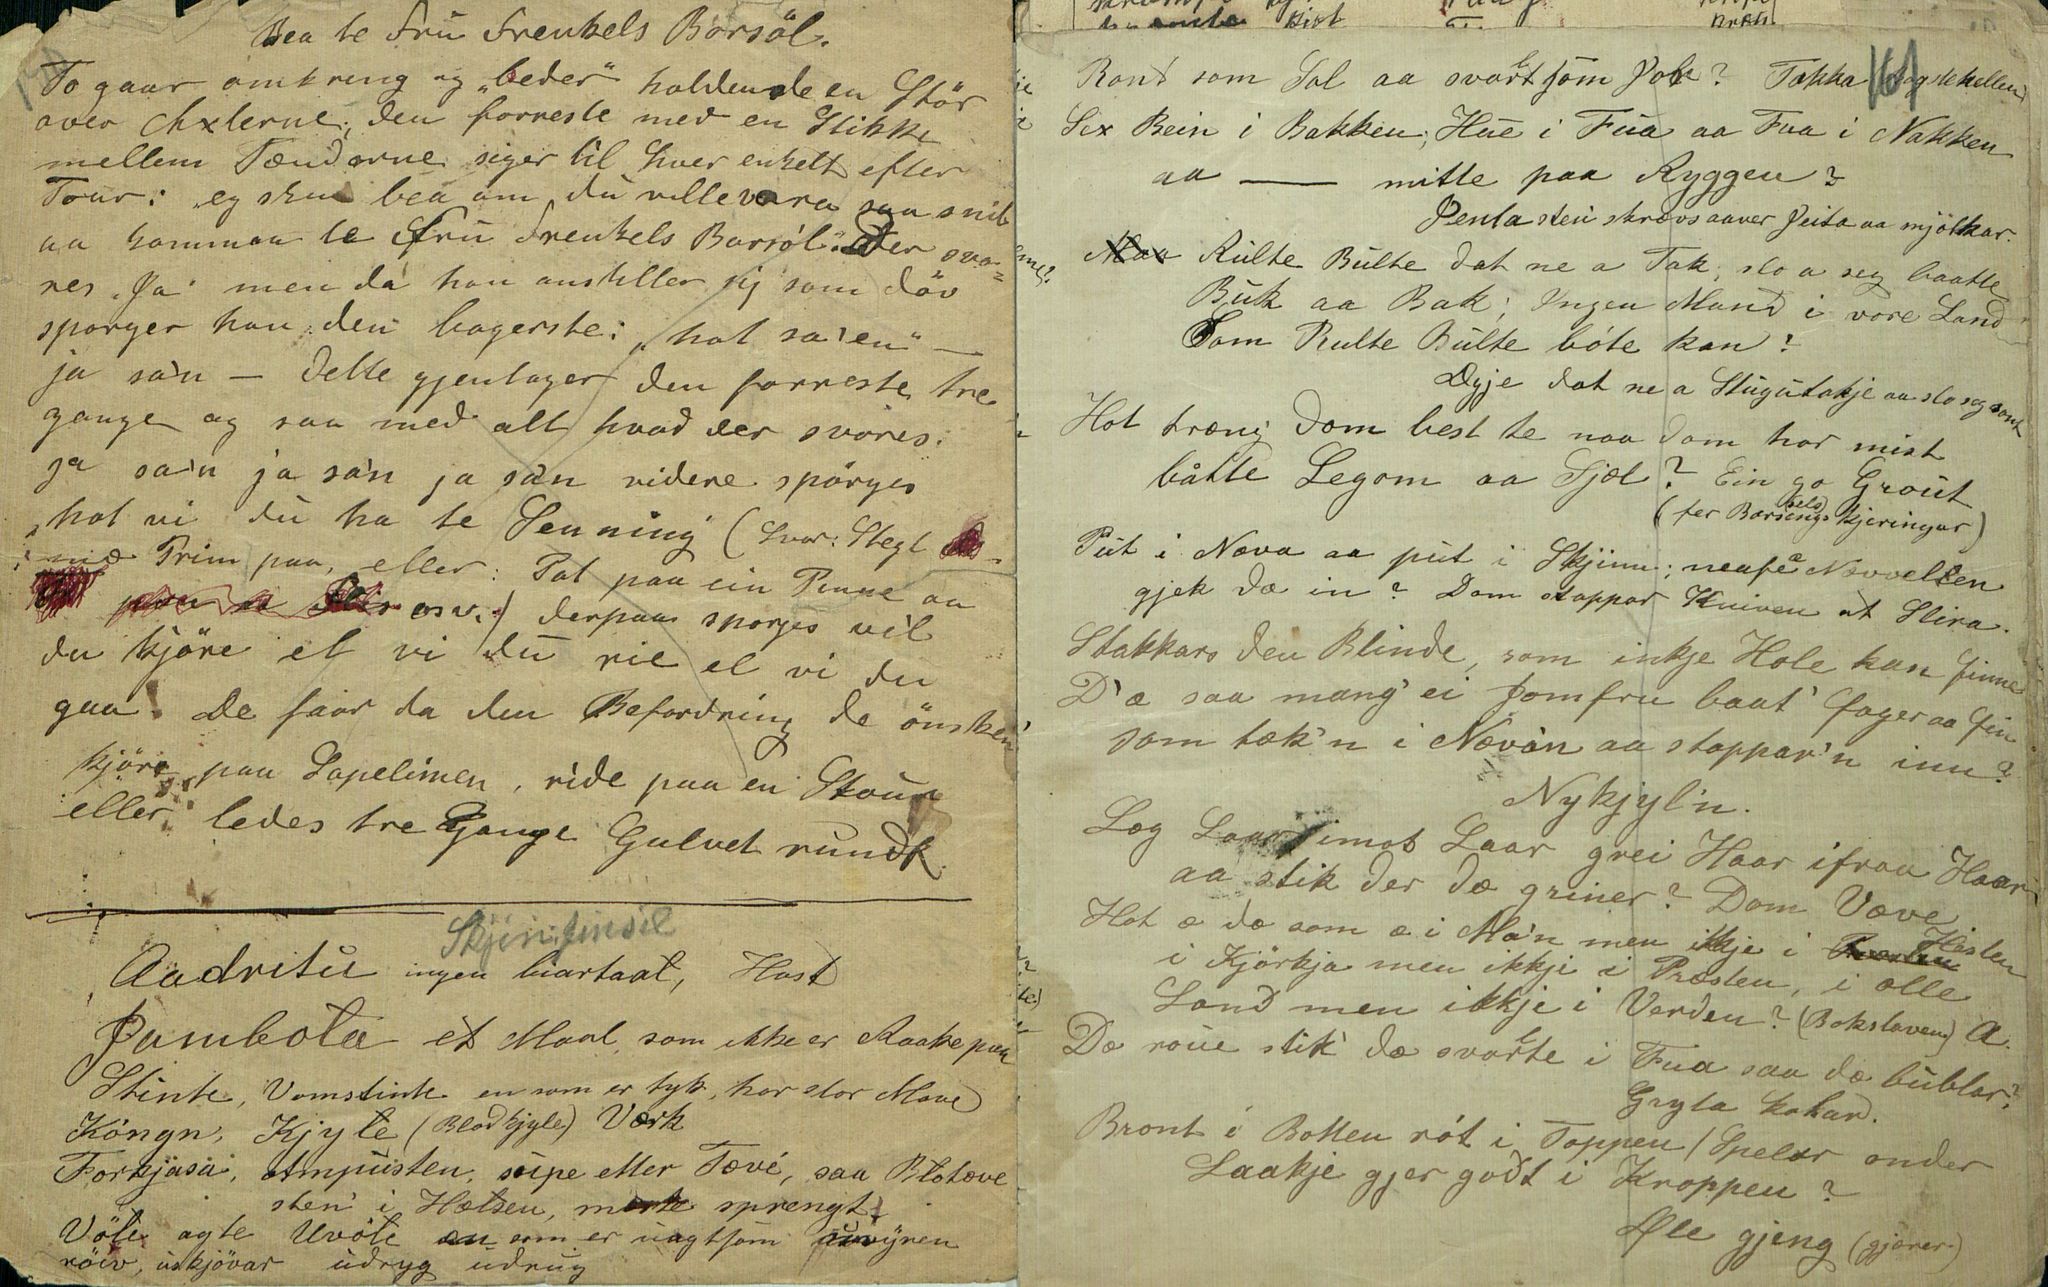 Bea te Fru Frenkels Barsöl.
To gaar omkring og „beder“ holdende en Stör
over Axlerne, den forreste med en Stikke
mellem Tænderne siger til hver enkelt efter
Tour: „eg sku bea om du ville vara saa snil
aa komma te Fru Frenkels Barsöl“. Der sva-
res „Ja“ men da han anstiller sig som döv
spörger han den bagerste: „hot sa'en“ —
ja sa'n — dette gjentager den forreste tre
gange og saa med alt hvad der svares.
ja sa'n ja sa'n ja sa'n videre spörges
„hot vi du ha te Senning (Svar: Stegt
mæ Prim paa, eller: Pot paa ein Pinne aa
osv.) derpaa spörges vil
du kjöre el vi du rie el vi du
gaa! De faar da den Befordring de önsker
kjöre paa Sopelimen, ride paa en Staur
eller ledes tre Gange Gulvet rundt.
Skjin, finsil
Aadritu ingen biartaat, Hast
Jambota et Maal, som ikke er Raake paa
Stinte, Vomstinte en som er tyk, har stor Mave
Köngn, Kjyle (Blodkjyle) Værk
Forkjasa, ampusten, supe etter Tævé, saa Blotæve
sten i Hælsen, sprengt
Vöte agte Uvöte som er uagtsom uvyren
röiv, uskjövar udryg udrug
161
Rond som Sol aa svart som Jol? Takka
Sex Bein i Bakken, Hue i Fua aa Fua i Nakken
aa — mitte paa Ryggen?
Jenta sten skrævs aaver Jeita aa mjölkar.
Rulte Bulte dat ne a Tak, slo a seg baatte
Buk aa Bak; Ingen Mand i vore Land
Som Rulte Bulte böte kan?
Dyje dat ne a Stugutakje aa slo seg sont
Hot træng Dom best te naa dom har mist
båtte Legom aa Sjæl? Ein go Grout
(fer Barsels kjeringar)
Put i Næva aa put i Skjinn; neafe Navvelen
gjek dæ in? Dom stappar Kniven at Slira.
Stakkars den Blinde, som inkje Hole kan finne
D'æ saa mang' ei Jomfru baat' fager aa fin
som tæk'n i Nævan aa stappar'n inn?
Nykjyl'n.
Læg Laar imot Laar grei Haar ifraa Haar
aa stik der dæ griner? Dom Væve
Hot æ dæ som æ i Ma'n men ikkje i Hesten
i Kjörkja men ikkje i Præsten, i alle
Land men ikkje i Verden? (Bokstaven) A.
Dæ roue stik dæ svarte i Fua saa dæ bublar?
Gryta kokar.
Bront i Botten röt i Toppen / Spelar onder
Laakje gjer godt i Kroppen?
Öle gjeng (gjærer)